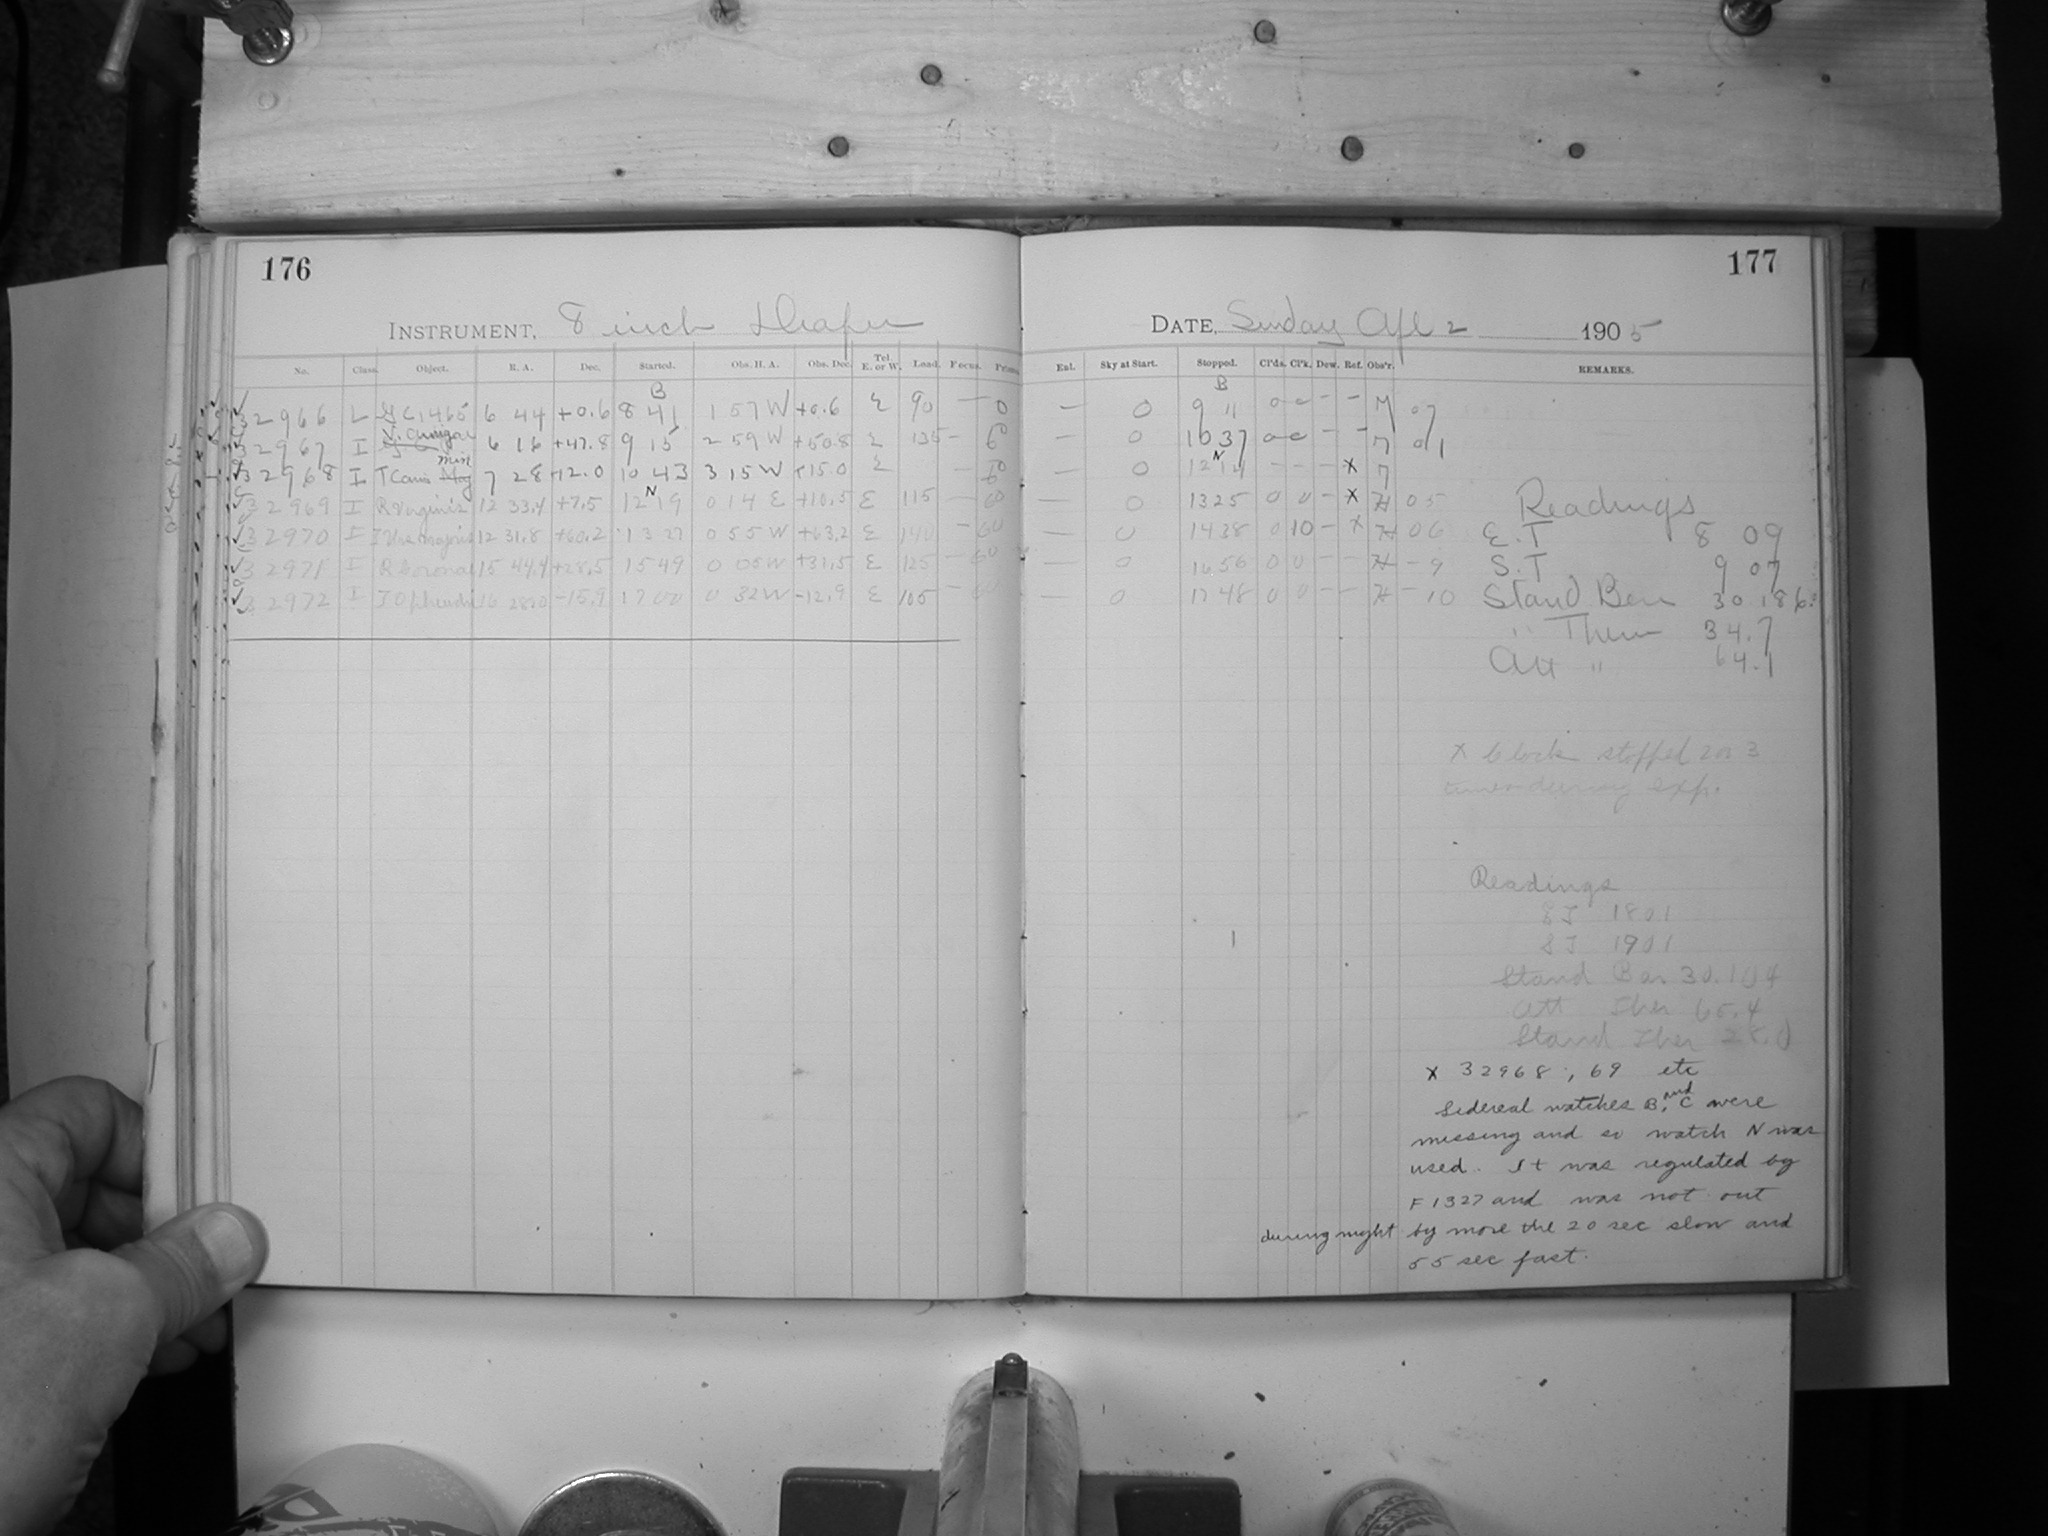 176
INSTRUMENT, 8 inch Draper
No. Class Object. R. A. Dec. Started. Obs. H. A. Obs. Dec. Tel. E. or W. Load. Focus.
B
32966 L G C 1465 6 44 +0.6 8 41 1 57 W +0.6 E 90 — 0
V. Aurigae
32967 I 6 16 +47.8 9 15 2 59 W +50.8 E 135 — 60
min
32968 I T Canis Maj 7 28 +12.0 10 43 3 15 W +15.0 E — 60
N
32969 I R Virginis 12 33.4 +7.5 12 19 0 14 E +10.5 E 115 — 60
32970 I T Urs Majoris 12 31.8 +60.2 13 27 0 55 W +63.2 E 140 — 60
32971 I R Coronae 15 44.4 +28.5 15 49 0 05 W +31.5 E 125 — 60
32972 I Ophiuchi 16 28.0 -15.9 17 00 0 32 W -12.9 E 105 — 60
177
DATE, Sunday Apl 2 1905
Ext. Sky at Start. Stopped. Cl'ds. Cl'k. Dew. Ref. Obs'r. REMARKS.
B
— 0 9 11 0 0 — — M 07
— 0 10 37 0 0 — — M 01
N
— 0 12 14 — — — x M
— 0 13 25 0 0 — x H 05
— 0 14 38 0 10 — x H 06
— 0 16 56 0 0 — — H — 9
— 0 17 48 0 0 — — H — 10
Readings
E.T 8 09
S.T 9 07
Stand Bar 30.186
" Ther 34.7
Att " 64.1
x Clock stopped 2 or 3
times during exp.
Readings
E T 18 01
S T 19 01
Stand Bar 30.104
Att Ther 65.4
Stand Ther 28.0
x 32968, 69 etc
Sidereal watches B, and C were
missing and so watch N was
used. It was regulated by
F 1327 and was not out
during night by more the 20 sec slow and
55 sec fast.